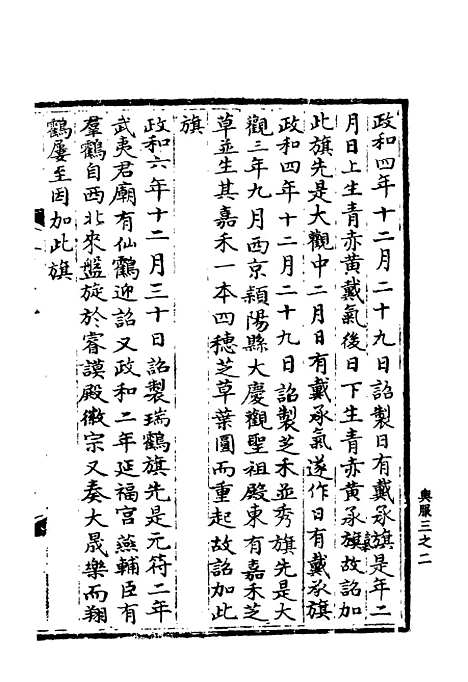 政和四年十二月二十九日詔製日有戴承旗是年二
月日上生青赤黄戴氣後日下生青赤黄承旗故詔加
此旗先是大觀中二月日有戴承氣遂作日有戴承旗
政和四年十二月二十九日詔製芝禾並秀旗先是大
觀三年九月西京潁陽縣大慶觀聖祖殿東有嘉禾芝
草並生其嘉禾一本四穗芝草葉圓而重起故詔加此
旗
政和六年十二月三十日詔製瑞鶴旗先是元符二年
武夷君廟有仙鶴迎詔又政和二年延福宫燕輔臣有
羣鶴自西北來盤旋於睿謨殿徽宗又奏大晟樂而翔
鶴屢至因加此旗
輿服三之二